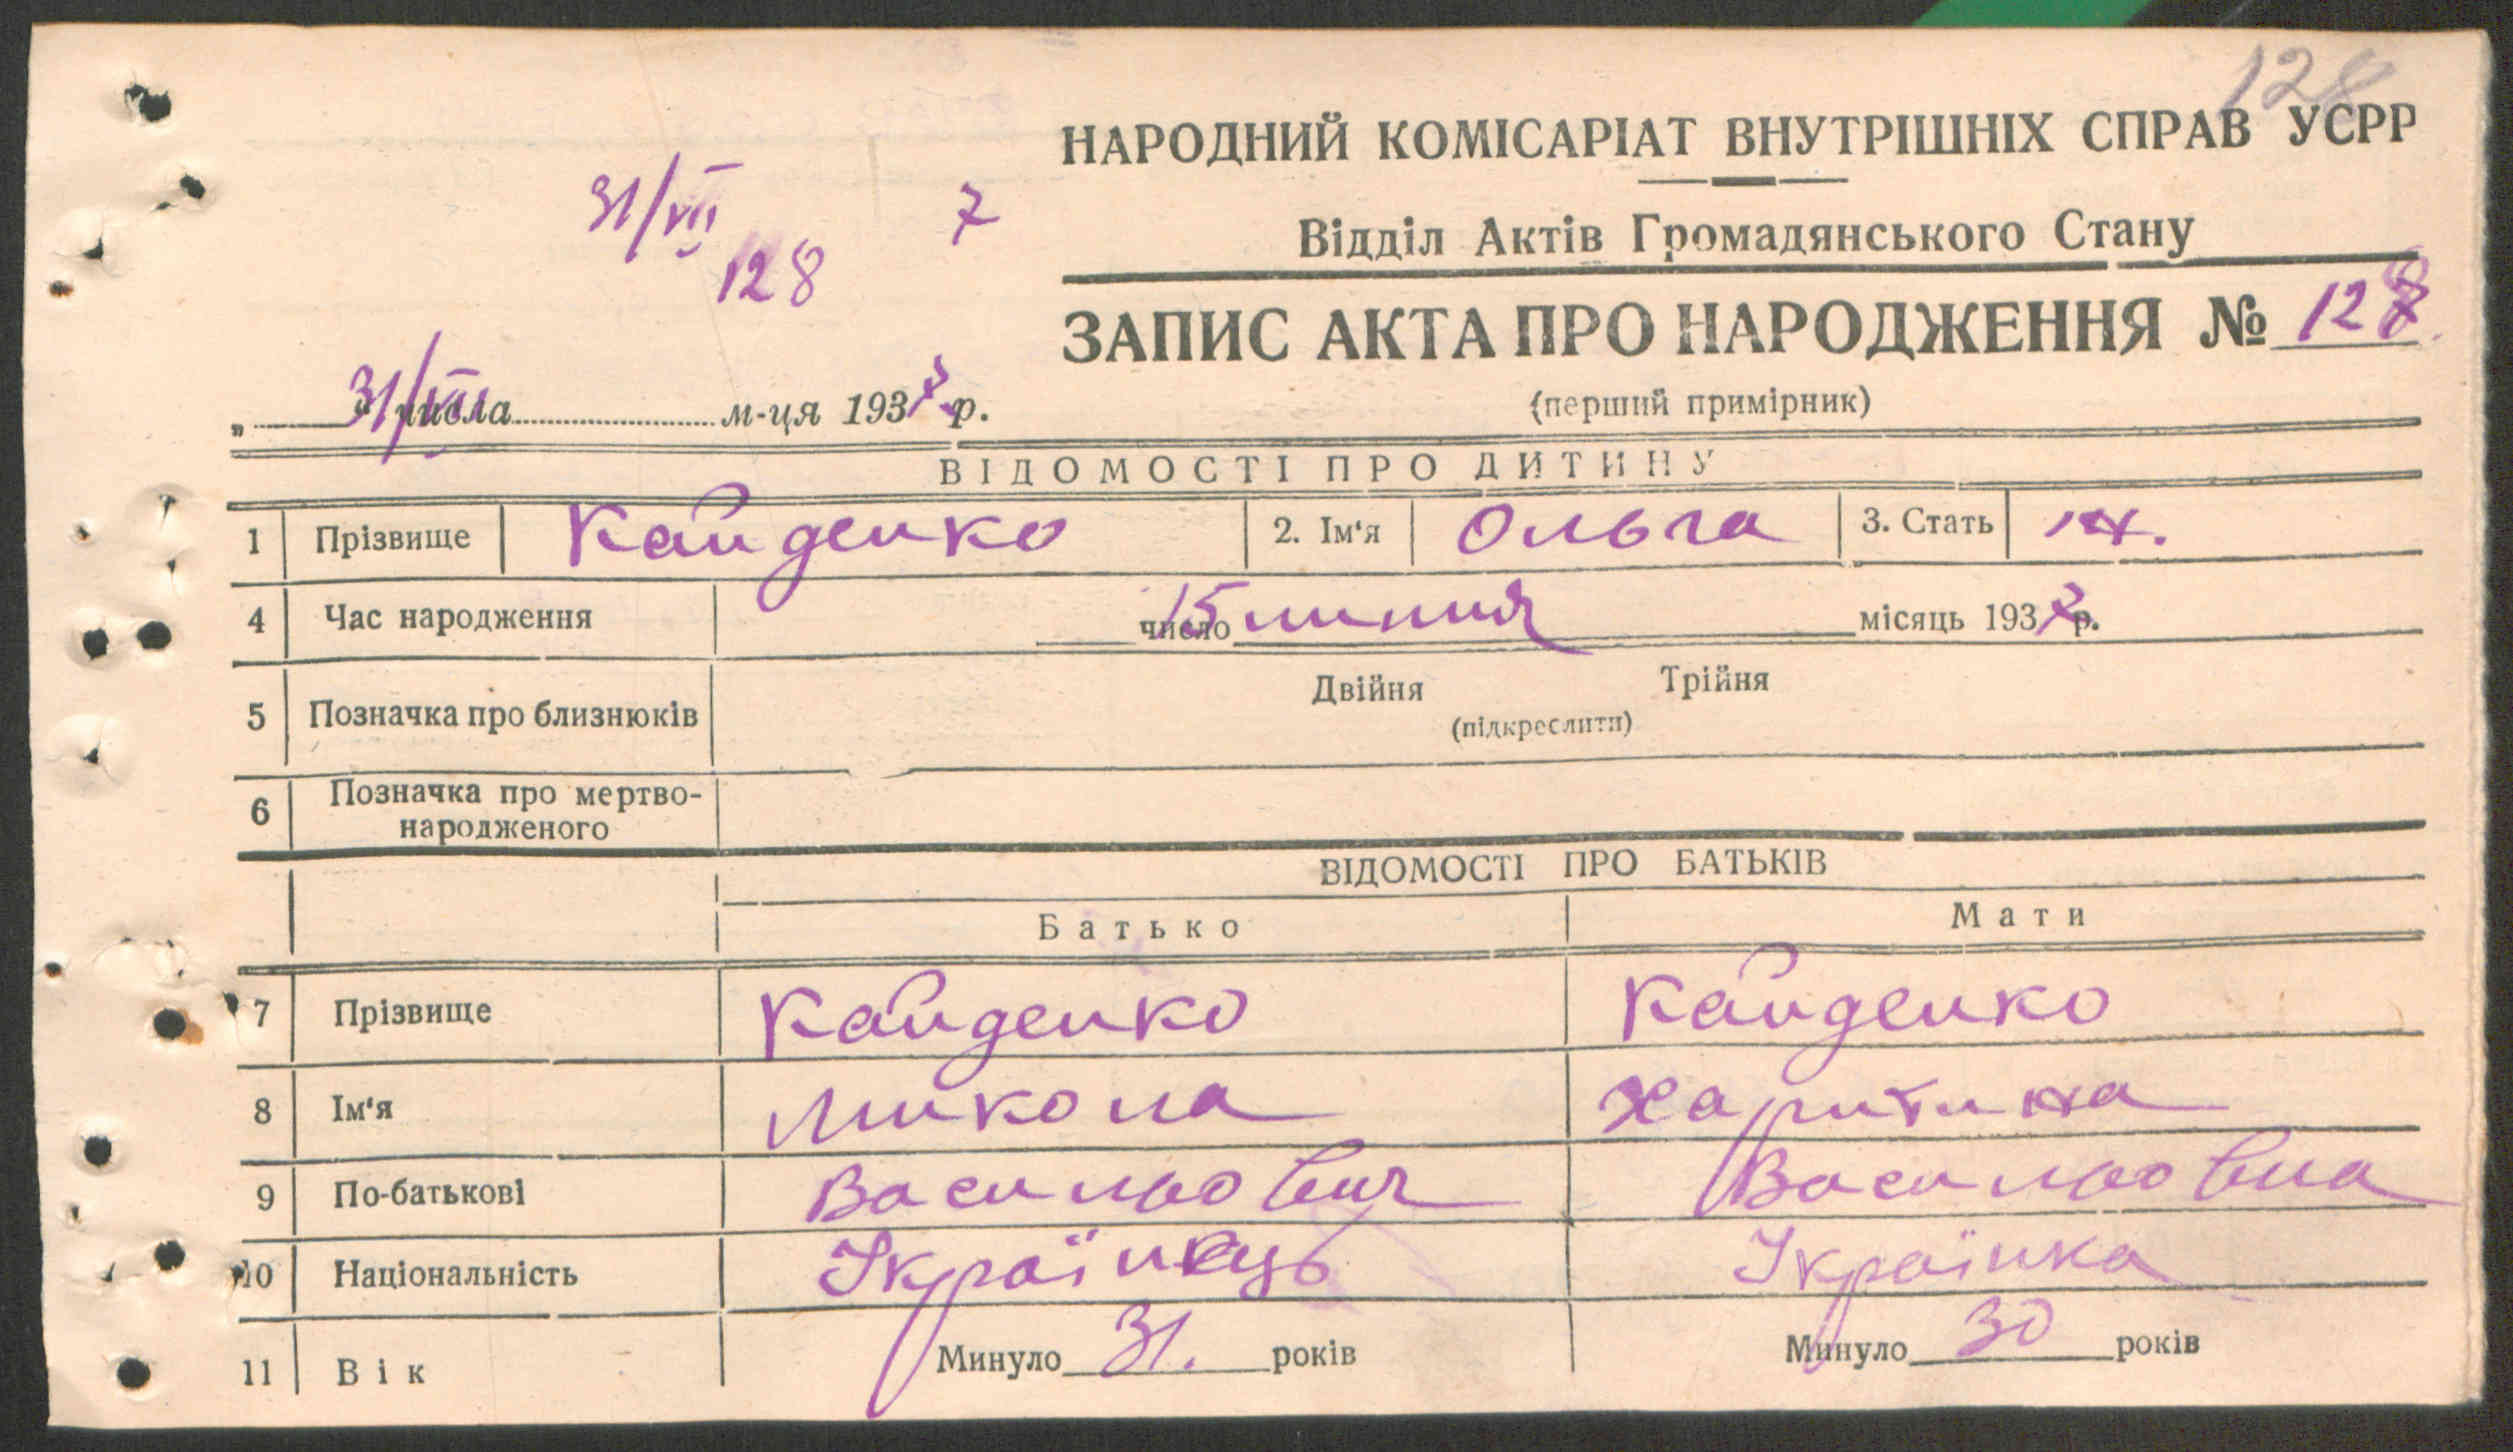 128
НАРОДНИЙ КОМІСАРІАТ ВНУТРІШНІХ СПРАВ УСРР
31/VII 7
128
Відділ Актів Громадянського Стану
ЗАПИС АКТА ПРО НАРОДЖЕННЯ № 128
(перший примірник)
„ 31/VII " числа м-ця 1937 р.
ВІДОМОСТІ ПРО ДИТИНУ
1 Прізвище Кайденко 2. Ім'я Ольга 3. Стать ж.
4 Час народження 15 число липня місяць 1937 р.
5 Позначка про близнюків Двійня Трійня
(підкреслити)
6 Позначка про мертво-
народженого
ВІДОМОСТІ ПРО БАТЬКІВ
Батько Мати
7 Прізвище Кайденко Кайденко
8 Ім'я Микола Харитина
9 По-батькові Васильович Васильовна
10 Національність Українець Українка
11 Вік Минуло 31. років Минуло 30 років